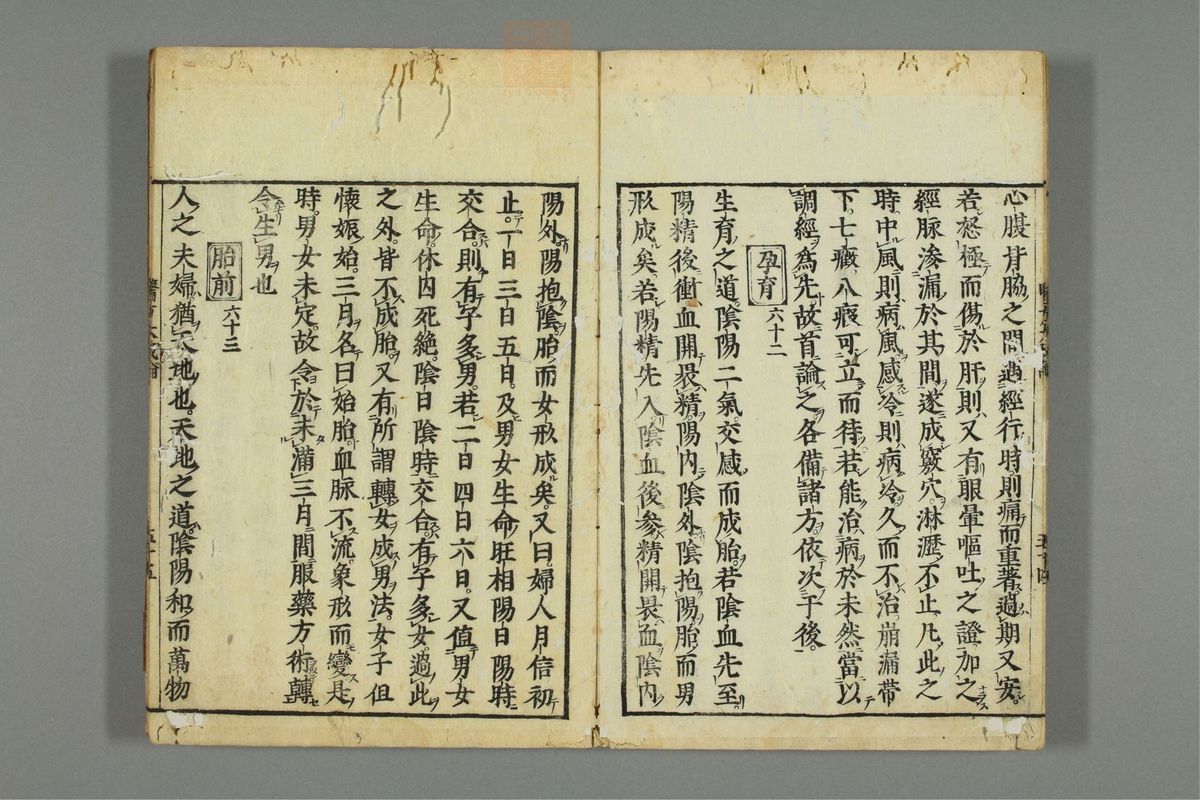 心腹背脇之間遇經行時則痛而重著過期又安
若怒極而傷於肝則又有眼暈嘔吐之證加之
經脉滲漏於其間遂成竅穴淋瀝不止凡此之
時中風則病風感冷則病冷久而不治崩漏帶
下七癥八瘕可立而待若能治病於未然當以
調經爲先故首論之各備諸方依次于後
孕育 六十二
生育之道陰陽二氣交感而成胎若陰血先至
陽精後衝血開裹精陽内陰外陰抱陽胎而男
形成矣若陽精先入陰血後參精開裹血陰内
陽外陽抱陰胎而女形成矣又曰婦人月信初
止一日三日五日及男女生命旺相陽日陽時
交合則有子多男若二日四日六日又值男女
生命休囚死絶陰日陰時交合有子多女過此
之外皆不成胎又有所謂轉女成男法女子但
懷娠始三月名曰始胎血脉不流象形而變是
時男女未定故令於未滿三月間服藥方術轉
令生男也
胎前 六十三
人之夫婦猶天地也天地之道陰陽和而萬物